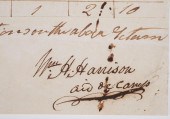 1 2 10
on the above Return
Wm H. Harrison
aid de camp